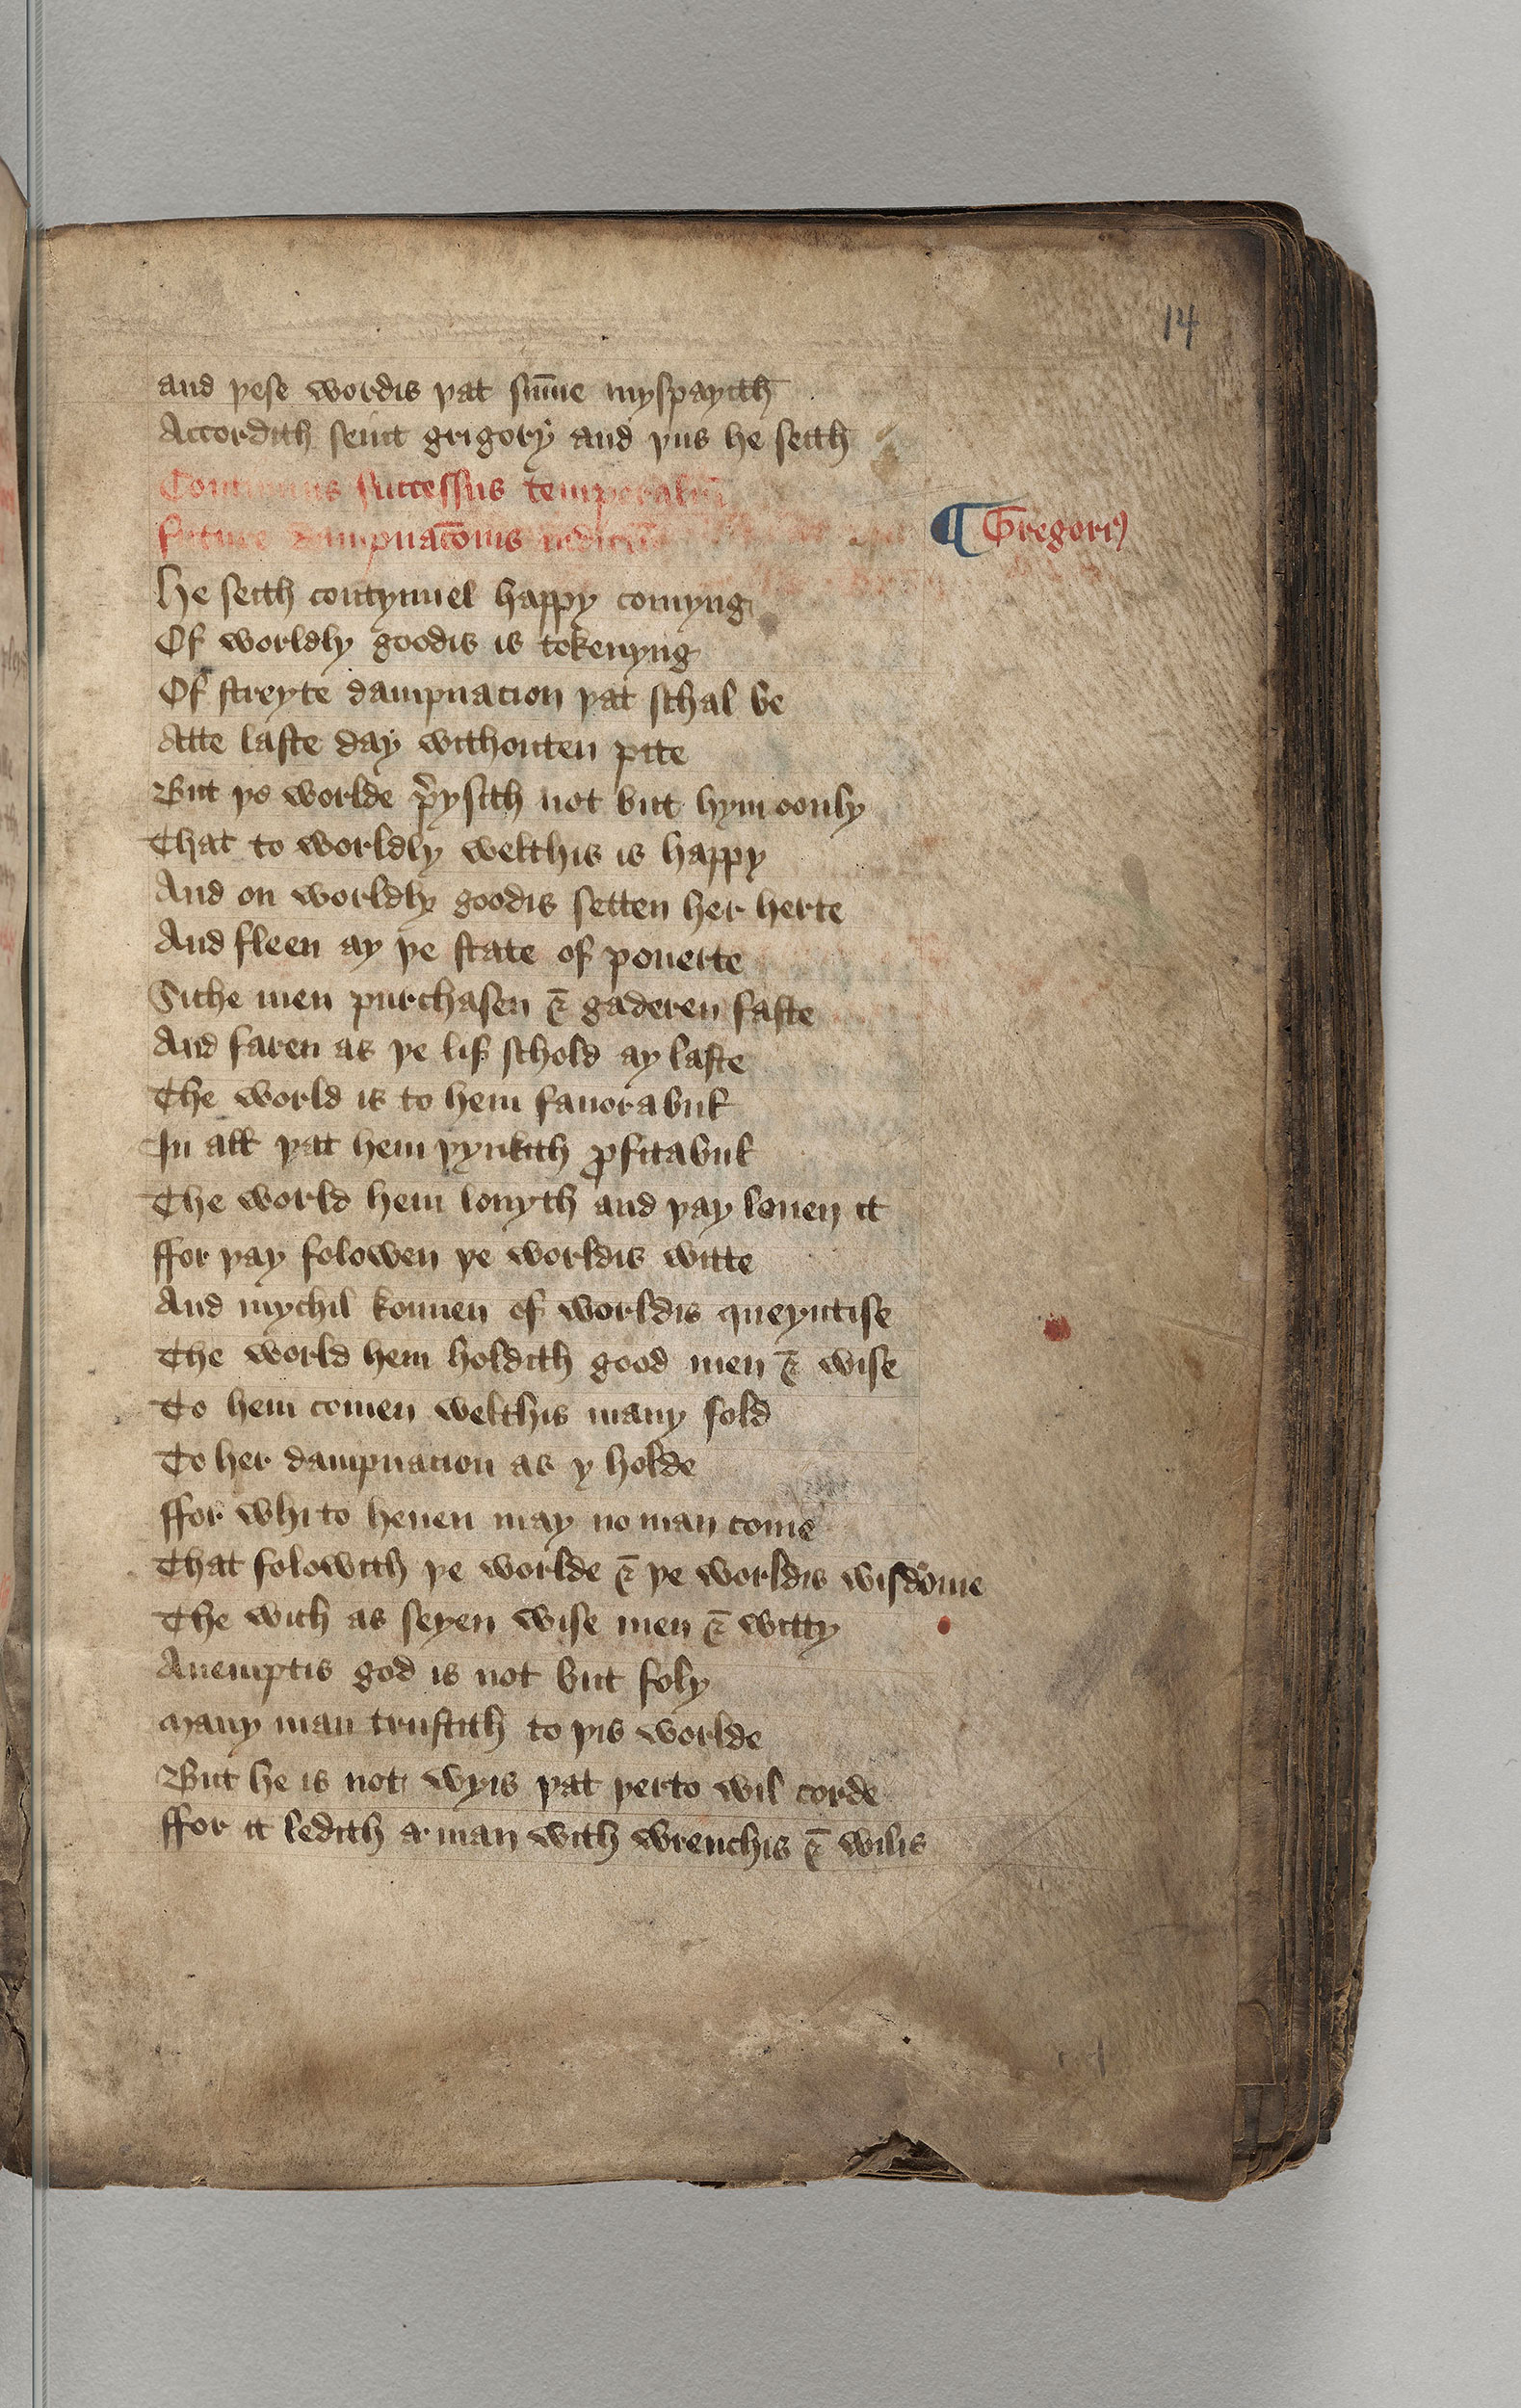 14
and yese wordis yat sūme myspayith
Accordith seint grigory and yus he seith
Continuus successus temporaliū
future dampnacōnis indiciū
¶ Gregori9
He seith contynuel happy comyng
Of worldly goodis is tokenyng
Of streyte dampnacion yat schal be
Atte laste day withouten pite
But ye worlde p̄ysith not but hym oonly
That to worldly welthis is happy
And on worldly goodis setten her herte
And fleen ay ye state of pouerte
Siche men purchasen & gaderen faste
And faren as ye lif schold ay laste
The world is to hem fauorabul
In all yat hem yynkith ꝓfitabul
The world hem louyth and yay louen it
ffor yay folowen ye worldis witte
And mychil konnen of worldis queyntise
The world hem holdith good men & wise
To hem comen welthis many fold
To her dampnacion as y holde
ffor whi to heuen may no man come
That folowith ye worlde & ye worldis wisdome
The wich as seyen wise men & witty
Anemptis god is not but foly
Many man trustith to yis worlde
But he is not wyis yat yerto wil corde
ffor it ledith a man with wrenchis & wilis